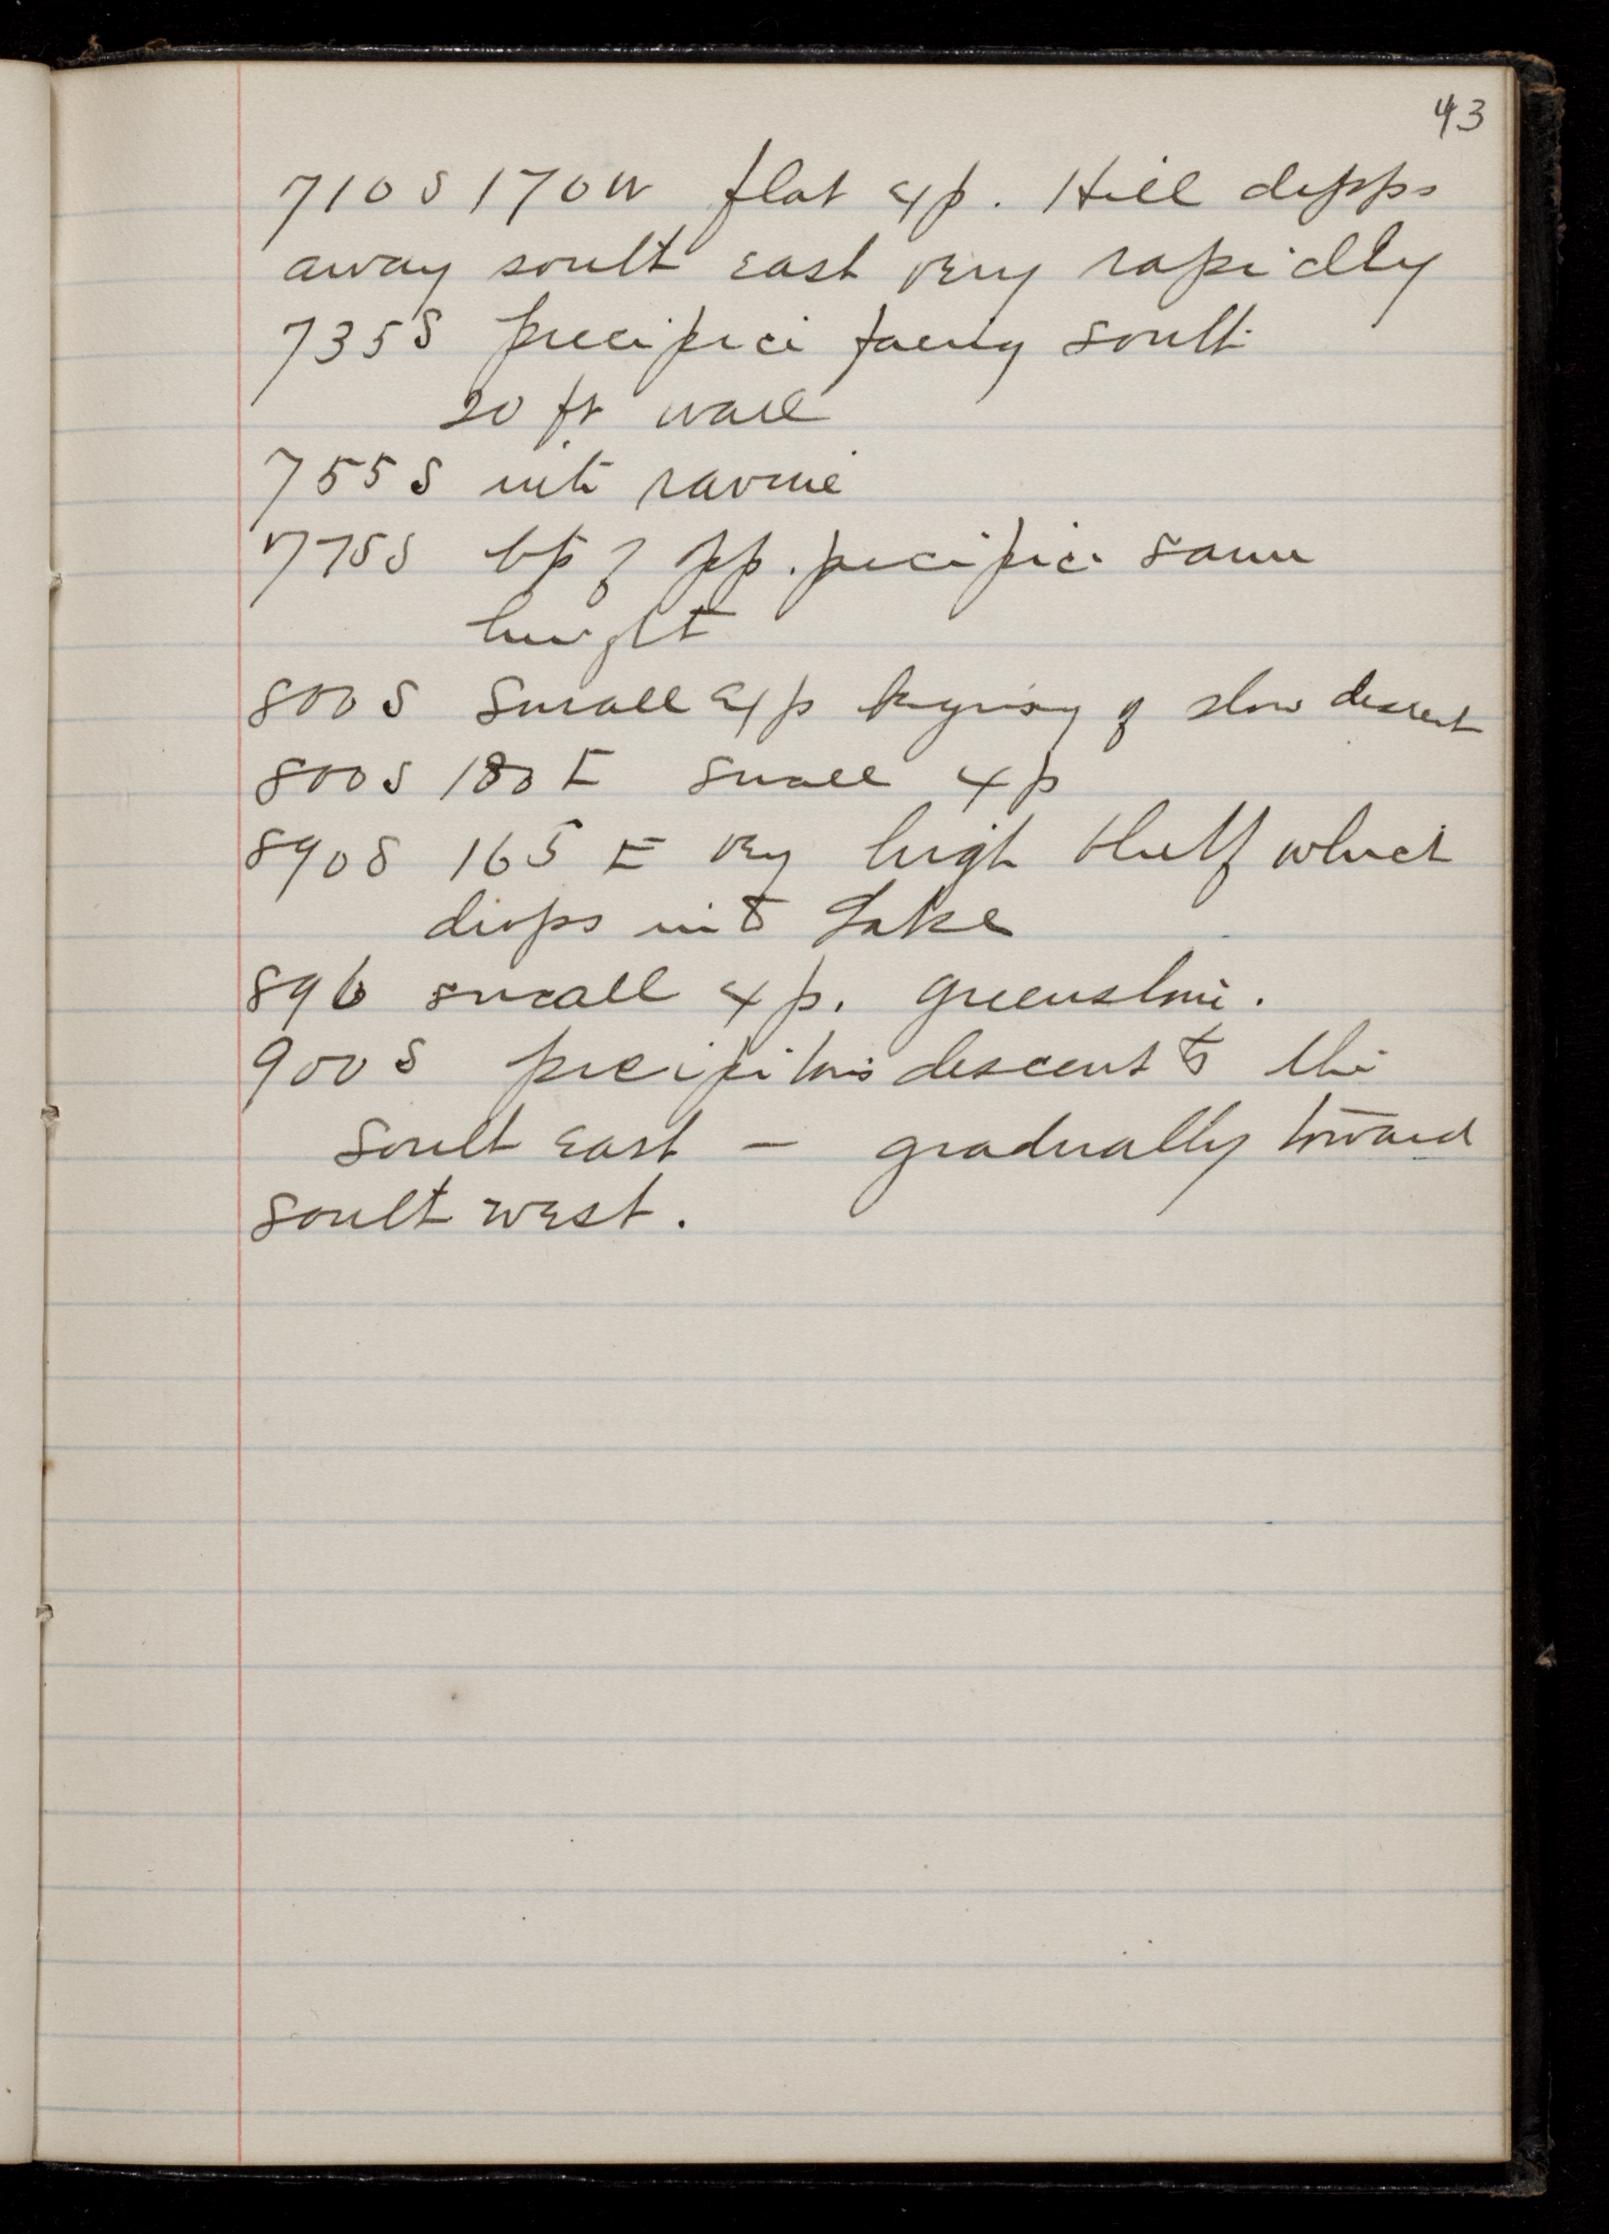 43
710 S 170 W flat exp. Hill dipps
away south east very rapidly
735 S precipice facing south
20 ft wall
755 S into ravine
775 S top of opp. precipice same
height
800 S Small exp begining of slow descent
800 S 180 E small exp
890 S 165 E very high bluff which
drops into Lake
896 small exp. greenstone.
900 S precipitous descent to the
south east — gradually toward
south west.